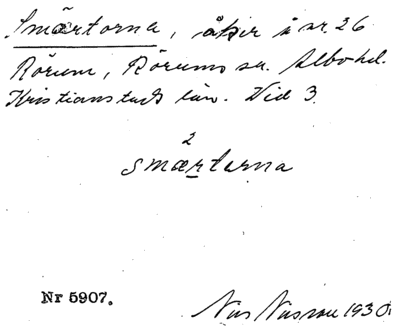 Smärtorna, åker å nr. 26
Rörum, Rörums sn. Albo hd.
Kristianstads län. Vid 3.
2
smærtərna
Nr 5907.
1930.